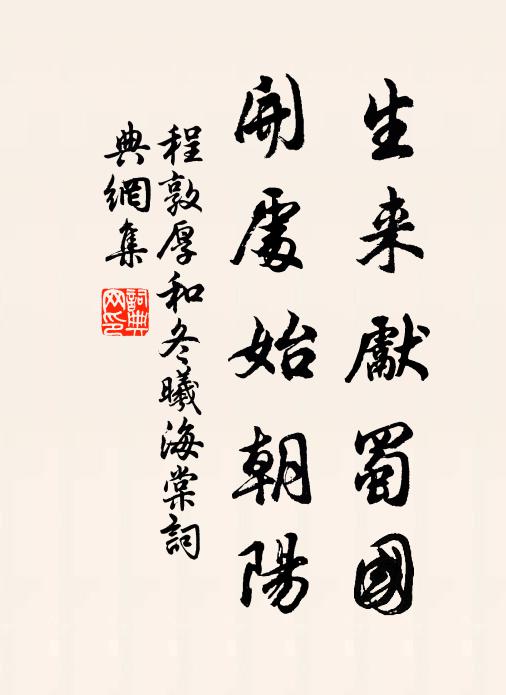 生来獻蜀國
開處始朝陽
程敦厚和冬曦海棠詞
典網集
詞典
网印